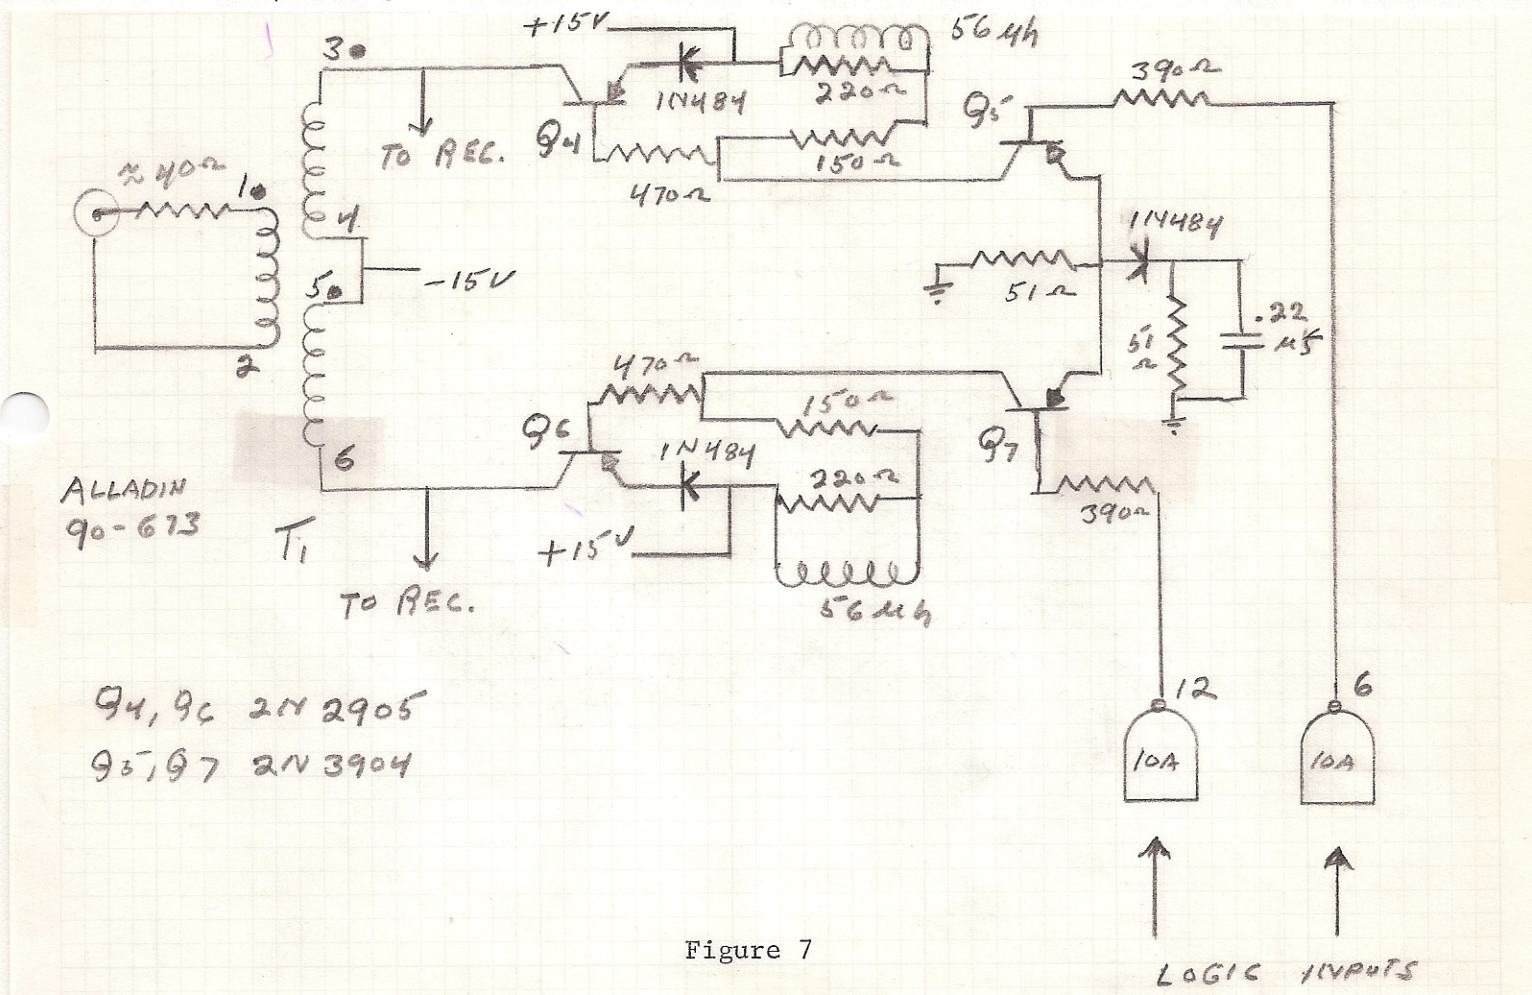 +15V
56 μh
3
1N484
220Ω
390Ω
Q5
Q4
TO REC.
150Ω
470Ω
≈ 40Ω
1
4
1N484
5
-15V
51Ω
.22
μf
51
Ω
2
470Ω
150Ω
Q6
Q7
1N484
6
220Ω
390Ω
ALLADIN
90-673
T1
+15V
TO REC.
56 μh
12
6
Q4, Q6 2N 2905
Q5, Q7 2N 3904
10A
10A
Figure 7
LOGIC INPUTS